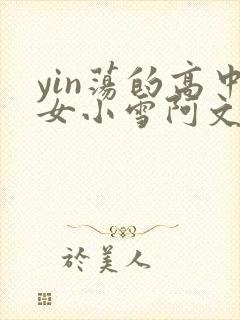 yin荡的高中
女小雪阿文
於美人